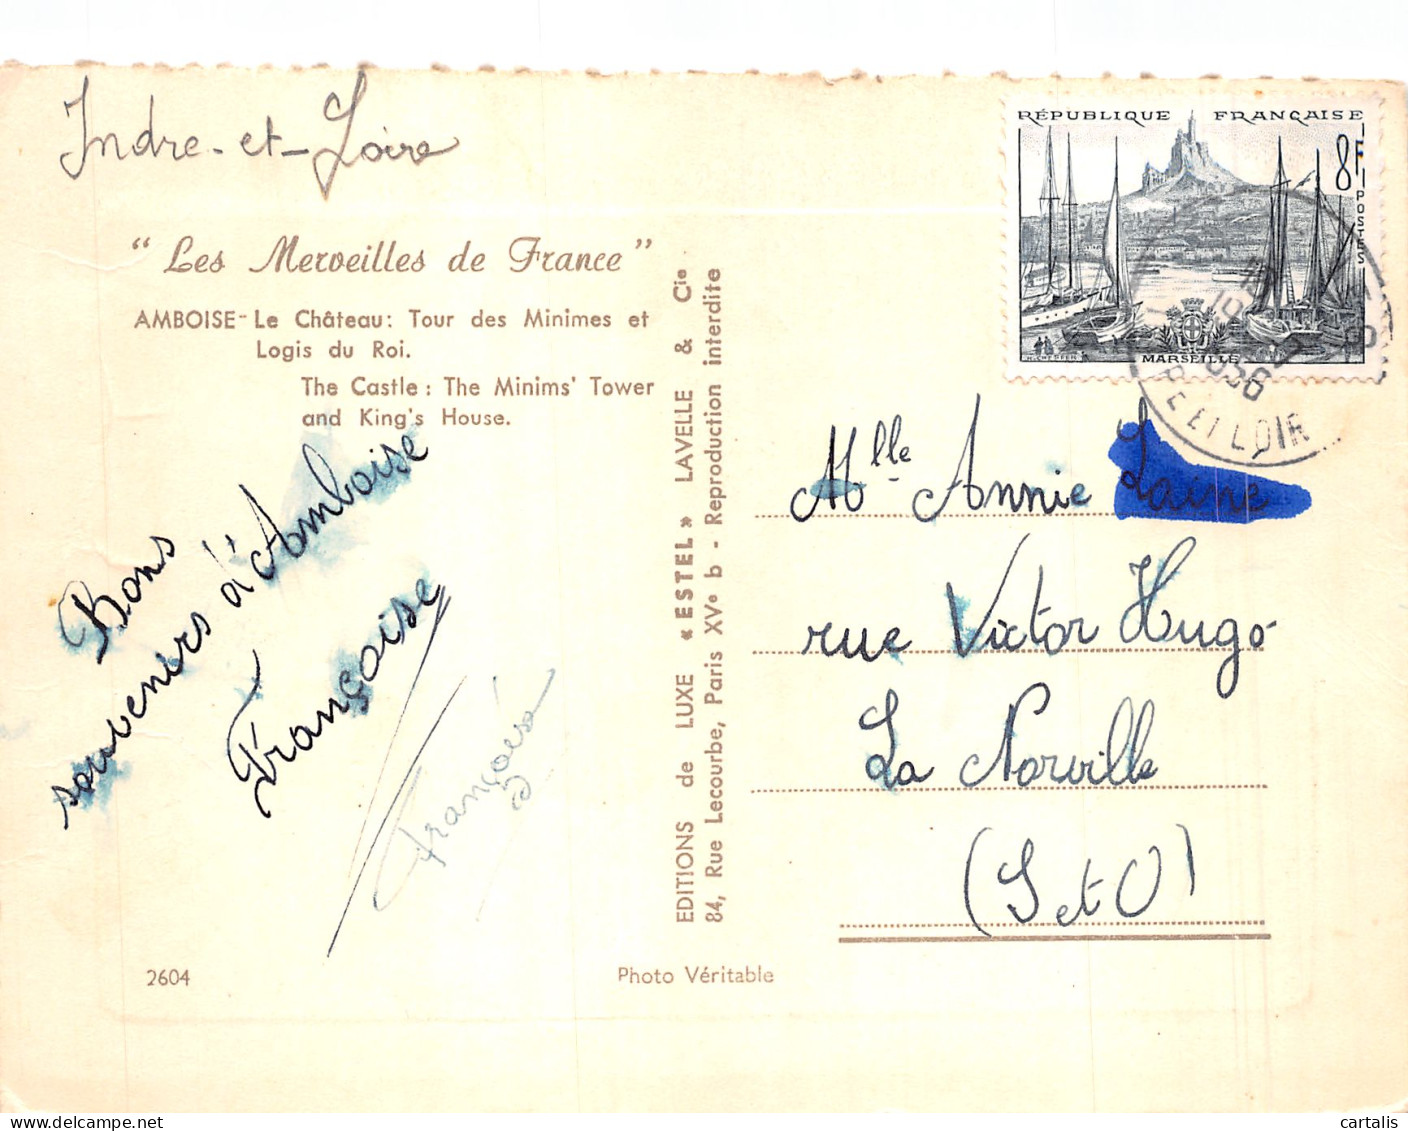 Indre-et-Loire
"Les Merveilles de France"
AMBOISE - Le Château: Tour des Minimes et
Logis du Roi.
The Castle: The Minims' Tower
and King's House.
Bons
souvenirs d'Amboise
Françoise
Françoise
2604
Photo Véritable
EDITIONS de LUXE « ESTEL » LAVELLE & Cie
84, Rue Lecourbe, Paris XVe b - Reproduction interdite
RÉPUBLIQUE FRANÇAISE
8F
POSTES
MARSEILLE
RE ET LOIR
Mlle Annie Laine
rue Victor Hugo
La Norville
(S et O)
cartalis
delcampe.net